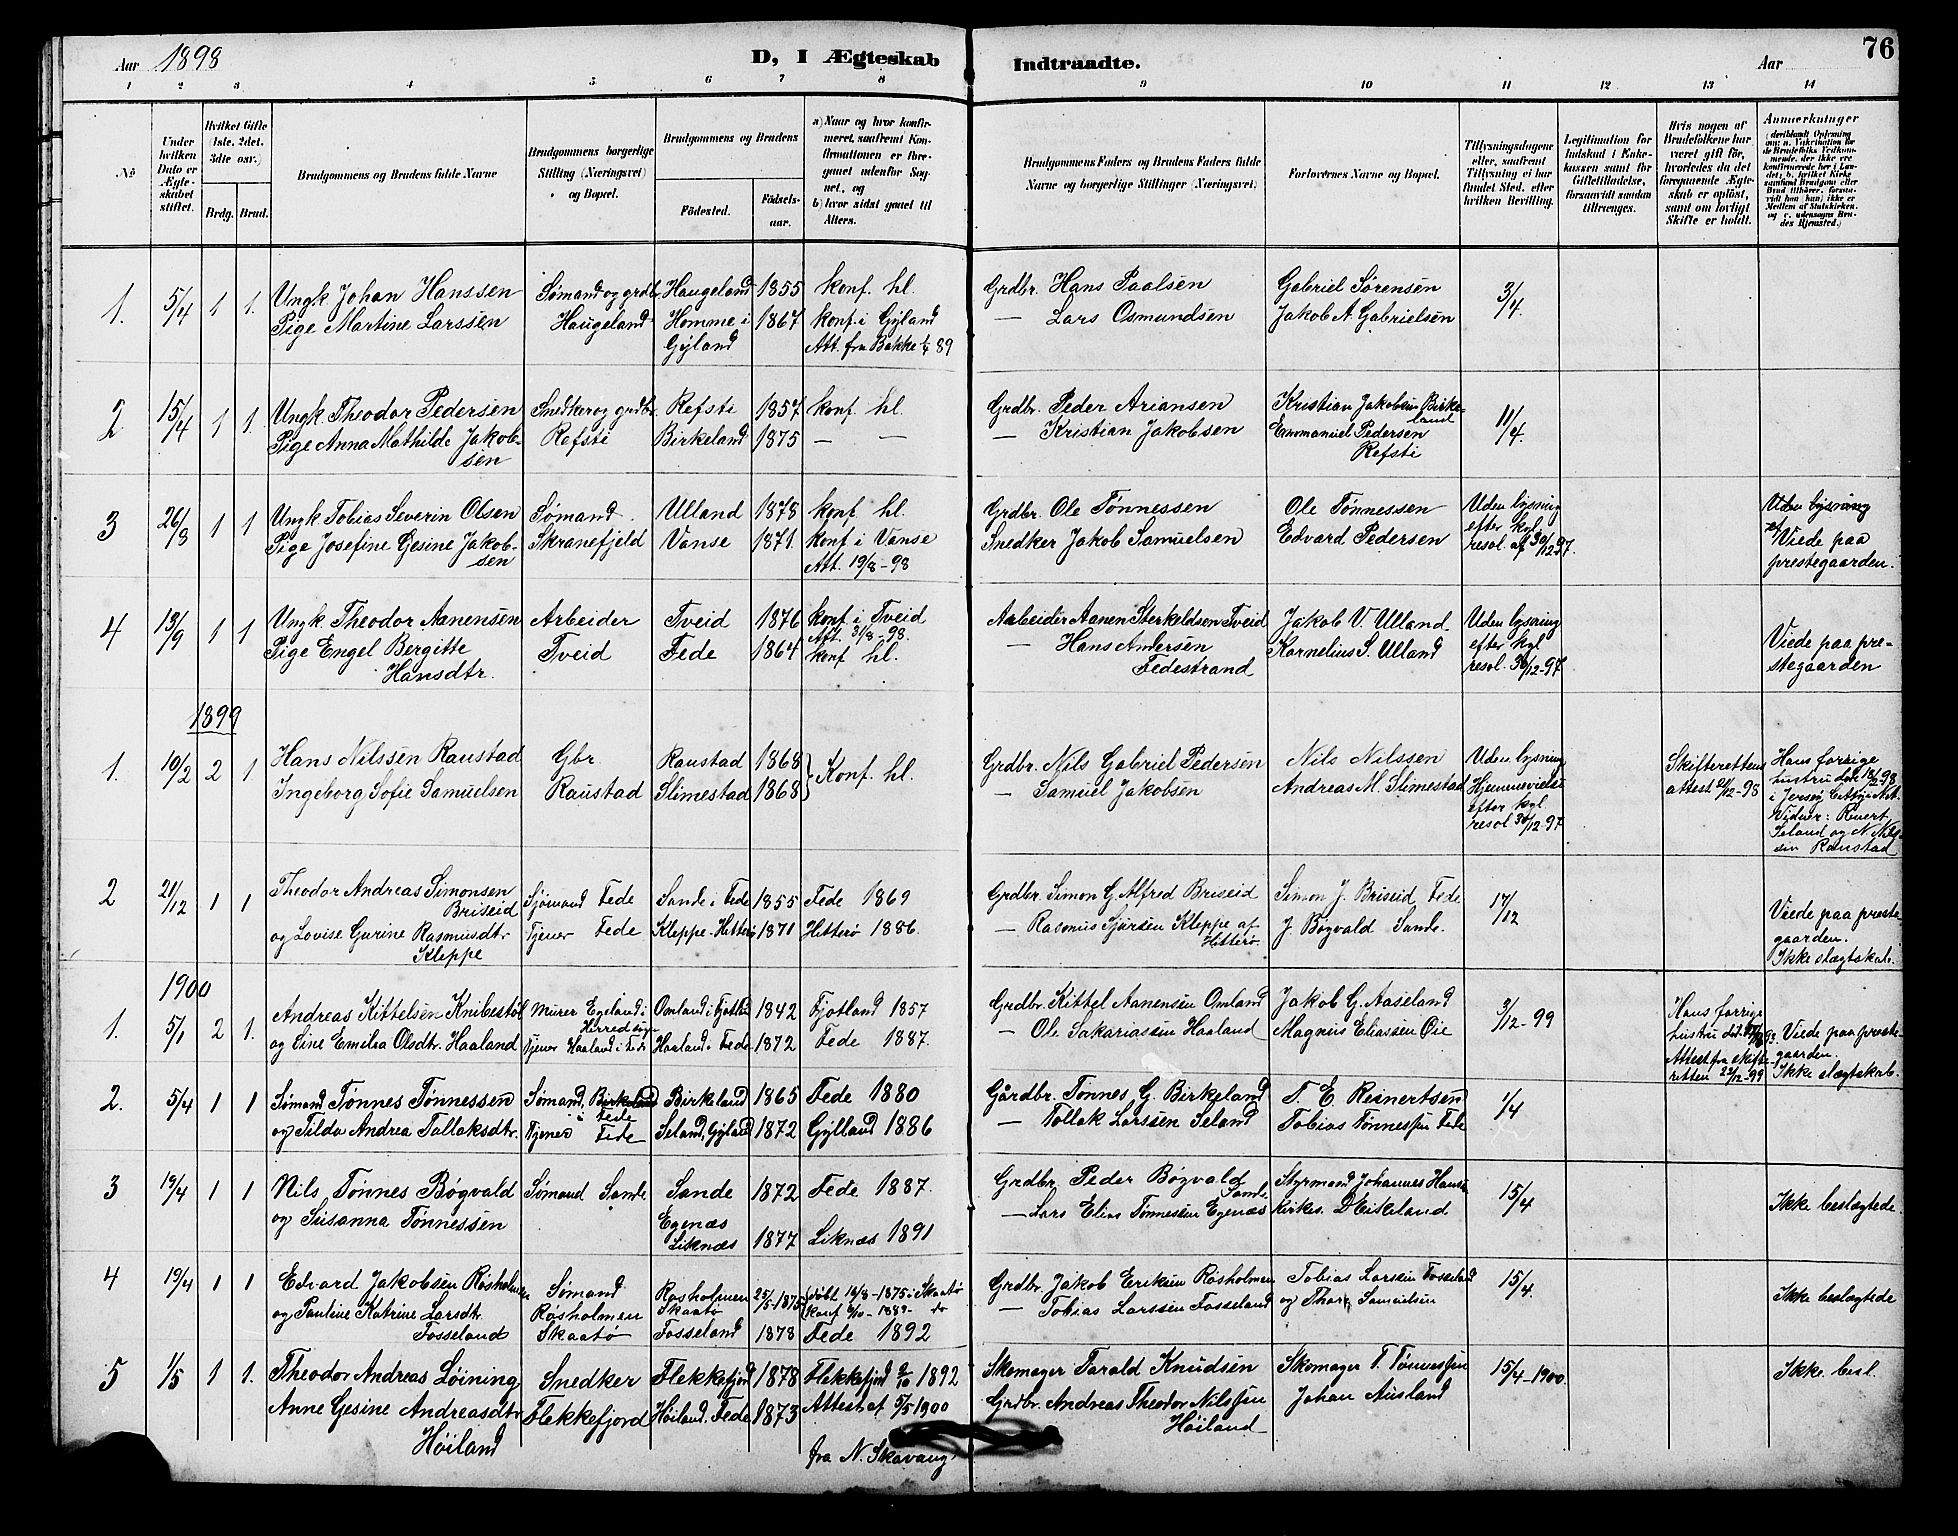 Aar 1898
D, I Ægteskab Indtraadte.
Aar
76
1 2 3 4 5 6 7 8 9 10 11 12 13 14
No.
Under hvilken Dato er Ægteskabet stiftet.
Hvilket Gifte (1ste, 2det, 3die osv.)
Brdg. Brud.
Brudgommens og Brudens fulde Navne
Brudgommens borgerlige Stilling (Næringsvei) og Bopæl.
Brudgommens og Brudens
Fødested. Fødsels-aar.
a) Naar og hvor konfirmeret, saafremt Konfirmationen er foregaaet udenfor Sognet, og
b) hvor sidst gaaet til Alters.
Brudgommens Faders og Brudens Faders fulde Navne og borgerlige Stillinger (Næringsvei.)
Forlovernes Navne og Bopæl.
Tillysningsdagene eller, saafremt Tillysning ei har fundet Sted, efter hvilken Bevilling.
Legitimation for Indskud i Enkekassen samt for Giftetilladelse, forsaavidt saadan tiltrænges.
Hvis nogen af Brudefolkene har været gift før, hvorledes da det foregaaende Ægteskab er opløst, samt om lovligt Skifte er holdt.
Anmerkninger
1. 5/4 1 1. Ungk Johan Hanssen Sømand og grdbr. Haugeland 1855 konf. hl. Grdbr. Hans Paalsen Gabriel Sørensen 3/4.
Pige Martine Larssen Haugeland Homme i Gyland 1867 konf. i Gyland — Lars Osmundsen Jakob A. Gabrielsen
Att. fra Bakke 89
2 15/4 1 1. Ungk Theodor Pedersen Snedker og grdbr. Refsti 1857 konf. hl. Grdbr. Peder Ariansen Kristian Jakobsen Birkeland 11/4.
Pige Anna Mathilde Jakobsen Refsti Birkeland 1875 — — — Kristian Jakobsen Emmanuel Pedersen Refsti
3 26/8 1 1 Ungk Tobias Severin Olsen Sømand Ulland 1878 konf. hl. Grdbr. Ole Tønnessen Ole Tønnessen Uden lysning Uden lysning
Pige Josefine Gesine Jakobsen Skranefjeld Vanse 1871. konf i Vanse Snedker Jakob Samuelsen Edvard Pedersen efter kgl. resol. af 30/12 97. Viede paa prestegaarden.
Att. 19/8-98
4 13/9 1 1 Ungk Theodor Aanensen Arbeider Tveid 1876 konf. i Tveid Arbeider Aanen Sterkeldsen Tveid Jakob V. Ulland Uden lysning Viede paa prestegaarden
Att. 31/8-98.
Pige Engel Bergitte Hansdtr. Tveid Fede 1864 konf hl. — Hans Andersen Fedestrand Kornelius S. Ulland efter kgl resol. 30/12-97
1899
1. 10/2 2 1 Hans Nilssen Raustad Gbr Raustad 1868 Konf. hl. Grdbr. Nils Gabriel Pedersen Nils Nilssen Uden lysning Skifterettens attest /12-98 Hans forrige hustru død 18/2 98
Ingeborg Sofie Samuelsen Raustad Slimestad 1868 — Samuel Jakobsen Andreas M. Slimestad Hjemmevielse efter kgl. resol 30/12-97 Vidner: Reiert Seland og N. Nilssen Raustad
2 21/12 1 1 Theodor Andreas Simonsen Briseid Sjømand Fede Sande i Fede 1855 Fede 1869 Grdbr. Simon G. Alfred Briseid Simon J. Briseid Fede 17/12 Viede paa prestegaarden.
og Lovise Gurine Rasmusdtr Kleppe Tjener Fede Kleppe-Hitterø 1871 Hitterø 1886. — Rasmus Sjursen Kleppe af Hitterø J. Bøgvald Sande. Ikke slægtskab.
1900
1. 5/1 2 1. Andreas Kittelsen Knibestøl Murer Egeland i Herred sogn Omland i Fjotland 1842 Fjotland 1857 Grdbr. Kittel Aanensen Omland Jakob G. Aaseland 3/12-99 Hans forrige hustru død 93. Viede paa prestegaarden.
og Sine Emilia Olsdtr. Haaland Tjener Haaland i Fede Haaland. Fede 1872 Fede 1887. — Ole Sakariassen Haaland Magnus Eliassen Øie Attest fra skifteretten 22/12-99 Ikke slægtskab.
2. 5/4 1 1 Sømand Tønnes Tønnessen Sømand, Birkeland i Fede Birkeland 1865 Fede 1880 Gårdbr. Tønnes G. Birkeland T. E. Reinertsen 1/4
og Tilda Andrea Tallaksdtr. Tjener Fede Seland, Gyland 1872 Gylland 1886 — Tollak Larssen Seland Tobias Tønnessen Fede
3 19/4 1 1 Nils Tønnes Bøgvald Sømand Sande Sande 1872 Fede 1887. Grdbr. Peder Bøgvald Sande Styrmand Johannes Hans 15/4 Ikke beslægtede
og Susanna Tønnessen Egenæs Liknæs 1877 Liknæs 1891 — Lars Elias Tønnessen Egenæs Kirkes. D Eikeland.
4 19/4 1 1 Edvard Jakobsen Røsholmen Sømand Røsholmen Skaatø 25/5-1875 født 1875 i Skaatø konf. 1889 do Grdbr. Jakob Eriksen Røsholmen Tobias Larsen Fosseland 15/4. Ikke beslægtede
og Pauline Katrine Larsdtr. Fosseland Røsholmen Skaatø Fosseland 1878 Fede 1892 — Tobias Larssen Fosseland og Thore Samuelsen
5 1/5 1 1. Theodor Andreas Løining Snedker Flekkefjord 1878 Flekkefjord 2/10 1892 Skomager Tarald Knudsen Skomager T. Tønnessen 15/4-1900. Ikke besl.
Anne Gesine Andreasdtr Høiland Flekkefjord Høiland. Fede 1873 Attest af 5/5 1900 Grdbr. Andreas Theodor Nilssen Høiland Johan Ausland
fra N. Skavang